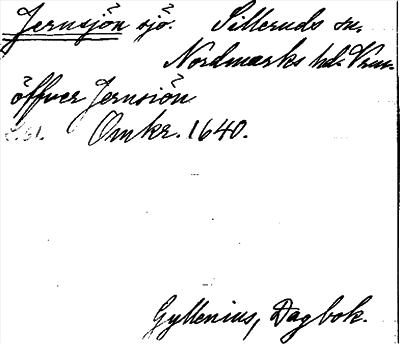 Jernsjön sjö. Silleruds sn.
Nordmarks hd. Vrm.
öffver Jernsiön
Omkr. 1640.
Gyllenius, Dagbok.